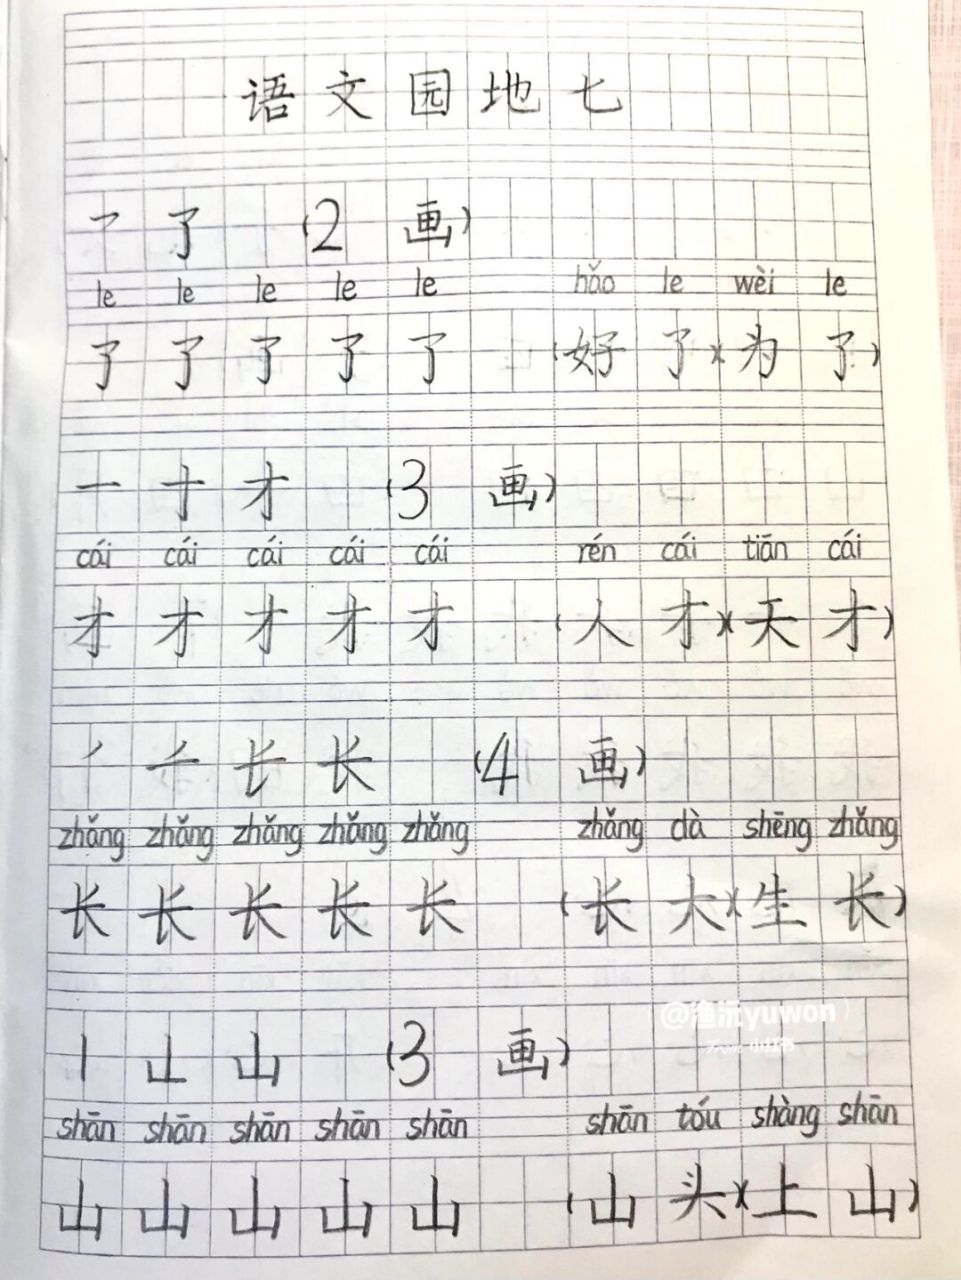 语文园地七
乛 了 (2 画)
le le le le le hǎo le wèi le
了 了 了 了 了 (好 了)(为 了)
一 十 才 (3 画)
cái cái cái cái cái rén cái tiān cái
才 才 才 才 才 (人 才)(天 才)
长 长 (4 画)
zhǎng zhǎng zhǎng zhǎng zhǎng zhǎng dà shēng zhǎng
长 长 长 长 长 (长 大)(生 长)
@渔沅yuwon
丨 山 山 (3 画)
shān shān shān shān shān shān tóu shàng shān
山 山 山 山 山 (山 头)(上 山)